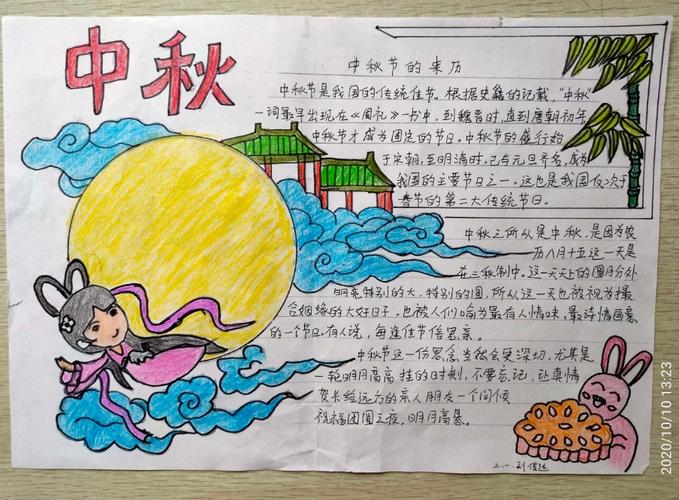 中秋
中秋节的来历
中秋节是我国的传统佳节。根据史籍的记载，"中秋"
一词最早出现在《周礼》一书中。到魏晋时，直到唐朝初年
中秋节才成为固定的节日。中秋节的盛行始
于宋朝，至明清时，已与元旦齐名，成为
我国的主要节日之一。这也是我国仅次于
春节的第二大传统节日。
中秋之所以是中秋，是因为农
历八月十五这一天是
在三秋制中。这一天天上的圆月分外
明亮特别的大，特别的圆，所以这一天也被视为撮
合姻缘的大好日子，也被人们喻为最有人情味，最诗情画意
的一个节日，有人说，每逢佳节倍思亲。
中秋节这一份思念当然会更深切，尤其是
一轮明月高高挂的时刻，不要忘记，让真情
长给远方的亲人朋友一个问候
祝福团圆之夜，明月高悬。
二.一 刘
2020/10/10 13:23